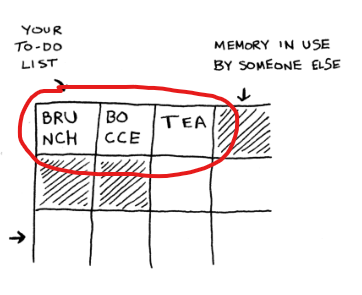 YOUR
TO-DO
LIST
MEMORY IN USE
BY SOMEONE ELSE
BRU
NCH
BO
CCE
TEA